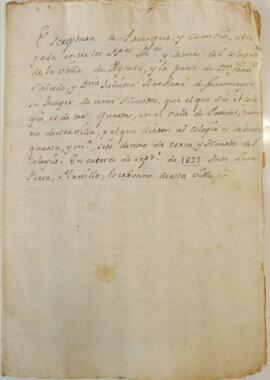 Escriptura de trueque, y cambio, otor
gada entre los SSres Rr y demas del colegio
de la villa de Agreda, y la parte de Dn Juan
Salcedo, y Dña Juliana
su muger de unos Huertos, que el que dio el cole
gio es de tres quartas, en el valle de termi
no desta villa, y el que dieron al colegio es de
quarta, y mª, sito dentro de cerca, y Huerta del
colegio. En catorce de Septe de 1633 Ante Lucas
Perez, Planillo, Escrivano desta villa